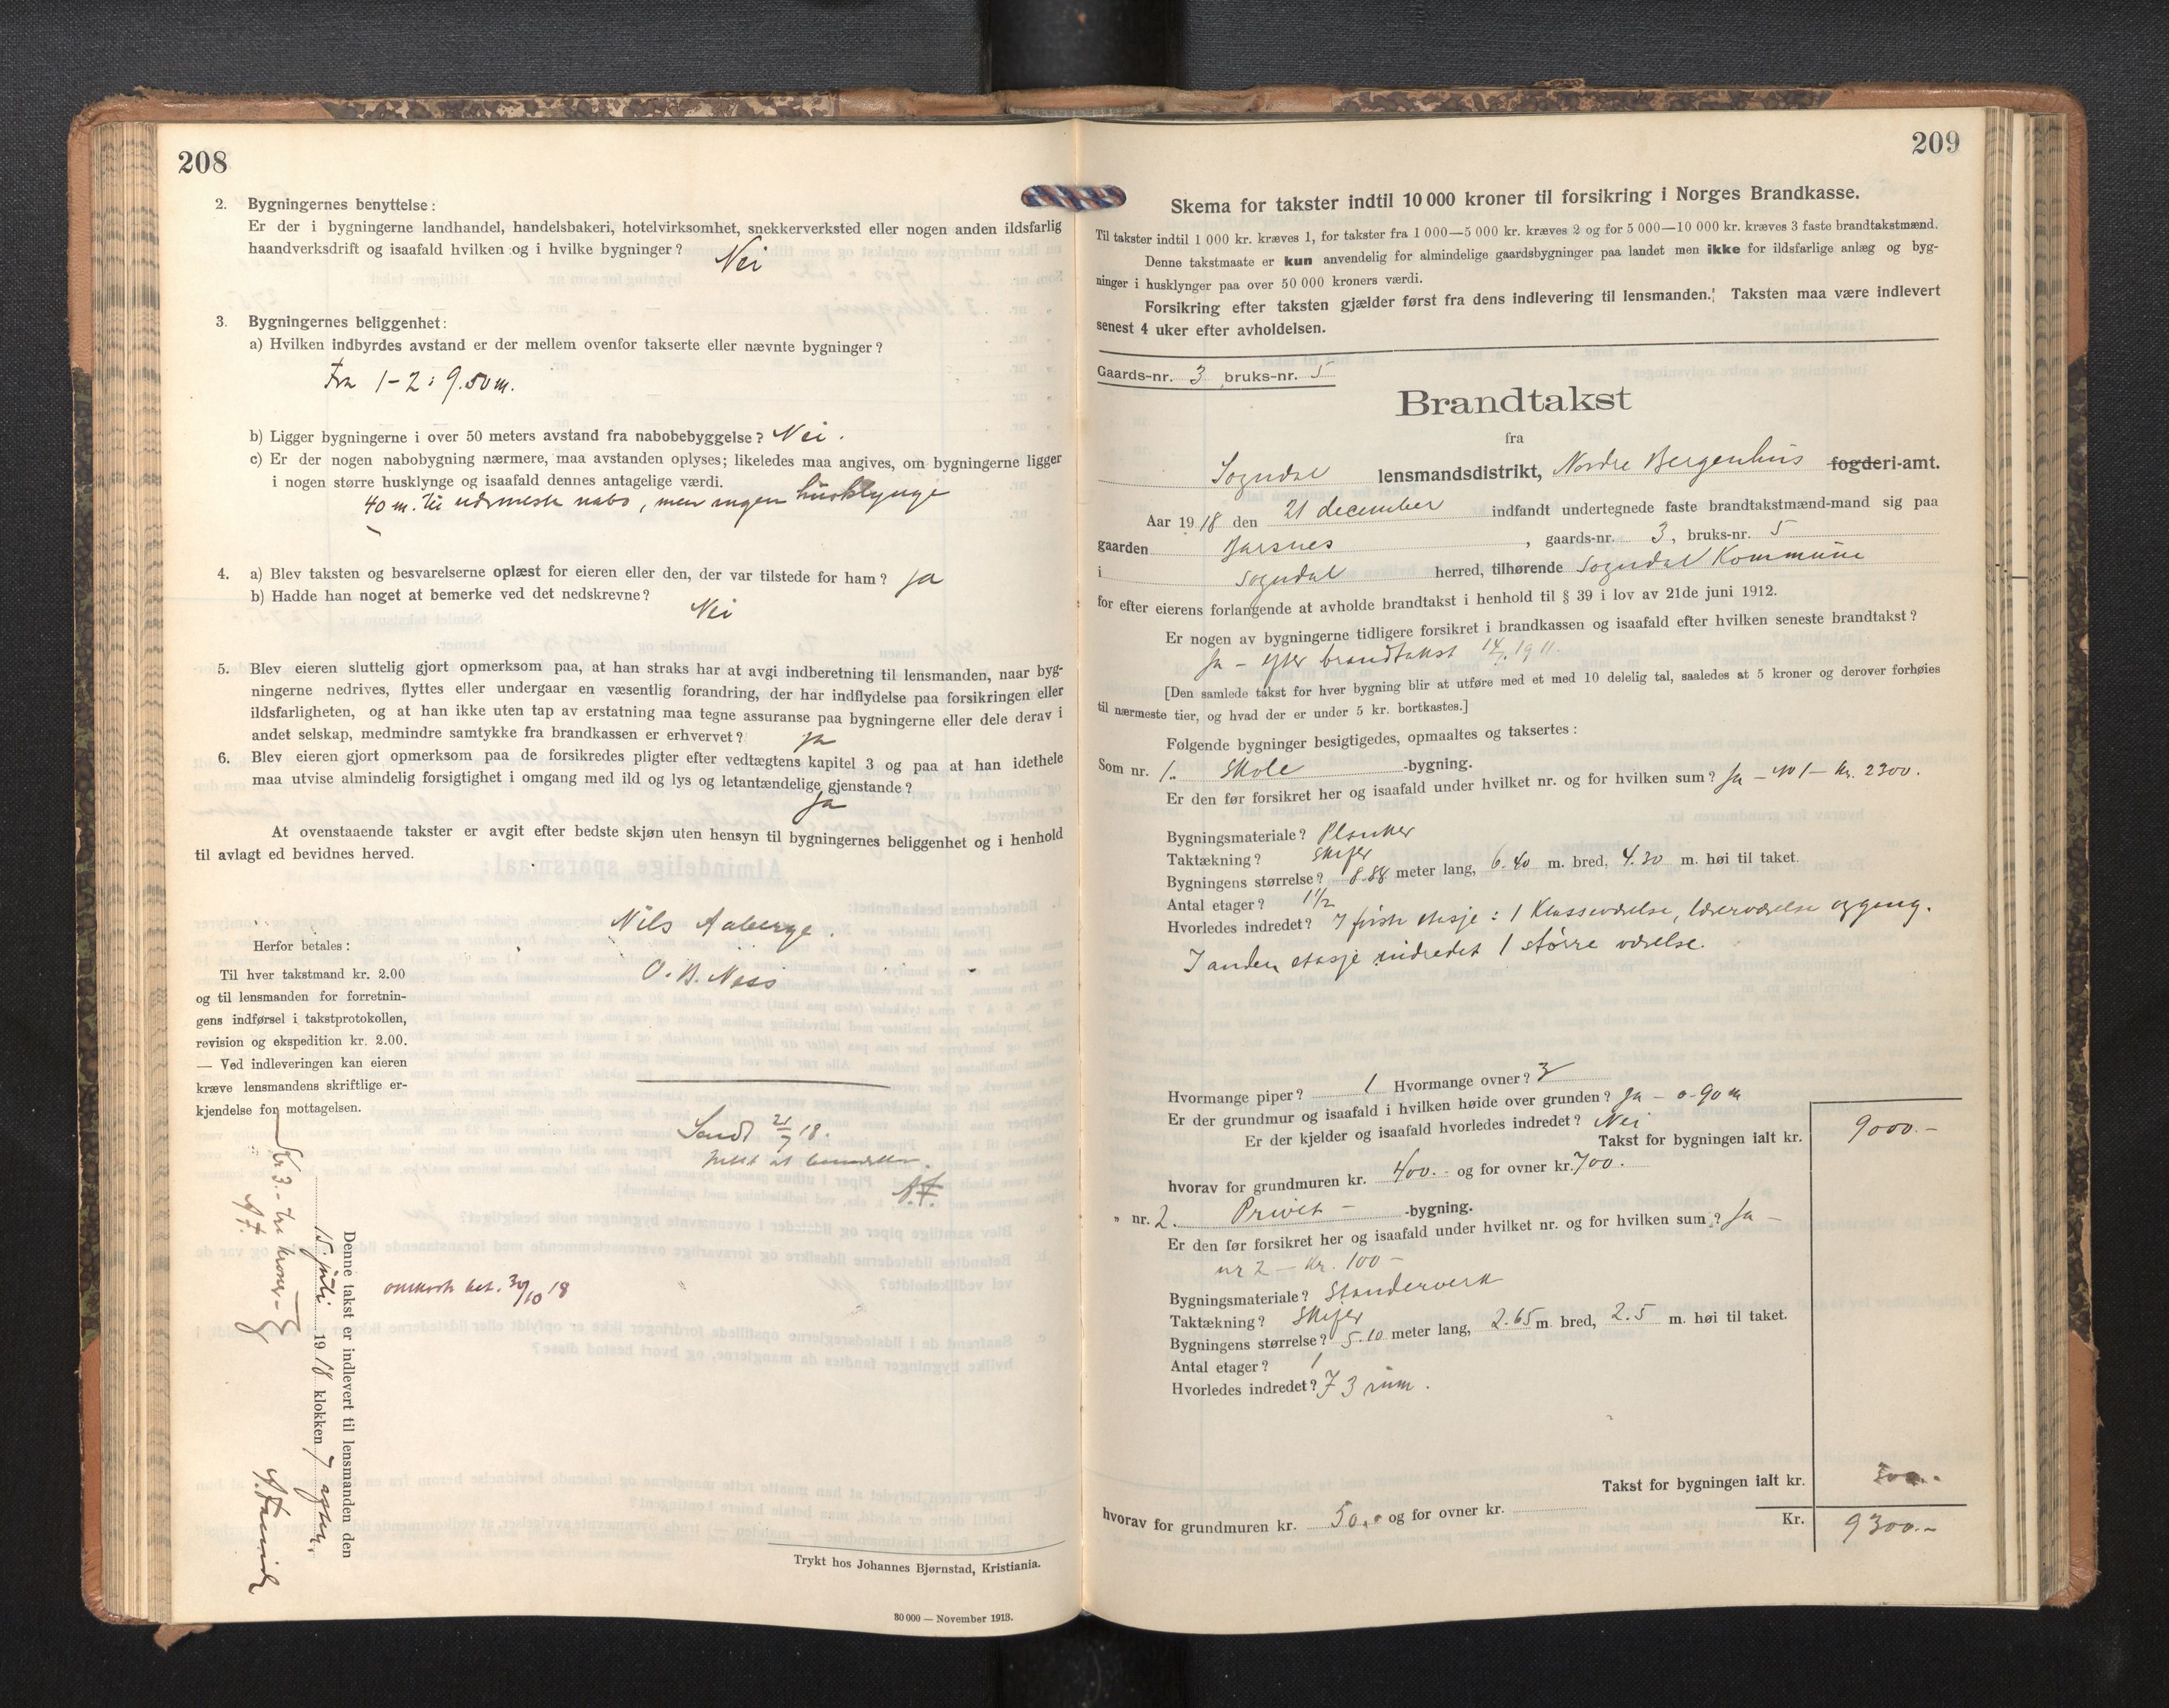 208
2. Bygningernes benyttelse:
Er der i bygningerne landhandel, handelsbakeri, hotelvirksomhet, snekkerverksted eller nogen anden ildsfarlig
haandverksdrift og isaafald hvilken og i hvilke bygninger? Nei
3. Bygningernes beliggenhet:
a) Hvilken indbyrdes avstand er der mellem ovenfor takserte eller nævnte bygninger?
Fra 1-2: 9.50 m.
b) Ligger bygningerne i over 50 meters avstand fra nabobebyggelse? Nei.
c) Er der nogen nabobygning nærmere, maa avstanden oplyses; likeledes maa angives, om bygningerne ligger
i nogen større husklynge og isaafald dennes antagelige værdi.
40 m. til nærmeste nabo, men ingen husklynge
4. a) Blev taksten og besvarelserne oplæst for eieren eller den, der var tilstede for ham? Ja
b) Hadde han noget at bemerke ved det nedskrevne?
Nei
5. Blev eieren sluttelig gjort opmerksom paa, at han straks har at avgi indberetning til lensmanden, naar byg-
ningerne nedrives, flyttes eller undergaar en væsentlig forandring, der har indflydelse paa forsikringen eller
ildsfarligheten, og at han ikke uten tap av erstatning maa tegne assuranse paa bygningerne eller dele derav i
andet selskap, medmindre samtykke fra brandkassen er erhvervet? Ja
6. Blev eieren gjort opmerksom paa de forsikredes pligter efter vedtægtens kapitel 3 og paa at han idethele
maa utvise almindelig forsigtighet i omgang med ild og lys og letantændelige gjenstande?
Ja
At ovenstaaende takster er avgit efter bedste skjøn uten hensyn til bygningernes beliggenhet og i henhold
til avlagt ed bevidnes herved.
Nils Aaberge.
O. B. Næss
Herfor betales:
Til hver takstmand kr. 2.00
og til lensmanden for forretnin-
gens indførsel i takstprotokollen,
revision og ekspedition kr. 2.00.
— Ved indleveringen kan eieren
kræve lensmandens skriftlige er-
kjendelse for mottagelsen.
Sendt 21/7 18.
Intet at bemerke.
Kr 3.- tre kroner
Denne takst er indlevert til lensmanden den
15 juli 1918 klokken 7 efterm.
bet. 30/10 18
Trykt hos Johannes Bjørnstad, Kristiania.
30 000 — November 1913.
209
Skema for takster indtil 10 000 kroner til forsikring i Norges Brandkasse.
Til takster indtil 1 000 kr. kræves 1, for takster fra 1 000—5 000 kr. kræves 2 og for 5 000—10 000 kr. kræves 3 faste brandtakstmænd.
Denne takstmaate er kun anvendelig for almindelige gaardsbygninger paa landet men ikke for ildsfarlige anlæg og byg-
ninger i husklynger paa over 50 000 kroners værdi.
Forsikring efter taksten gjælder først fra dens indlevering til lensmanden. Taksten maa være indlevert
senest 4 uker efter avholdelsen.
Gaards-nr. 3 bruks-nr. 5
Brandtakst
fra
Sogndal lensmandsdistrikt, Nordre Bergenhus fogderi-amt.
Aar 1918 den 21 december indfandt undertegnede faste brandtakstmænd-mand sig paa
gaarden Barsnes, gaards-nr. 3, bruks-nr. 5
i Sogndal herred, tilhørende Sogndal Kommune
for efter eierens forlangende at avholde brandtakst i henhold til § 39 i lov av 21de juni 1912.
Er nogen av bygningerne tidligere forsikret i brandkassen og isaafald efter hvilken seneste brandtakst?
Ja - efter brandtakst 14/7 1911.
[Den samlede takst for hver bygning blir at utføre med et med 10 delelig tal, saaledes at 5 kroner og derover forhøies
til nærmeste tier, og hvad der er under 5 kr. bortkastes.]
Følgende bygninger besigtigedes, opmaaltes og taksertes:
Som nr. 1. Skole -bygning.
Er den før forsikret her og isaafald under hvilket nr. og for hvilken sum? Ja - no 1 - Kr. 2300.
Bygningsmateriale? Planker
Taktækning? Skifer
Bygningens størrelse? 8.88 meter lang, 6.40 m. bred, 4.30 m. høi til taket.
Antal etager? 1 1/2
Hvorledes indredet? I første etasje: 1 Klasseværelse, lærerværelse og gang.
I anden etasje indredet 1 større værelse.
Hvormange piper? 1 Hvormange ovner? 3
Er der grundmur og isaafald i hvilken høide over grunden? Ja - 0.90 m
Er der kjelder og isaafald hvorledes indredet? Nei
Takst for bygningen ialt kr. 9000.-
hvorav for grundmuren kr. 400.- og for ovner kr. 700.-
" nr. 2. Privet - -bygning.
Er den før forsikret her og isaafald under hvilket nr. og for hvilken sum? Ja -
nr 2 - Kr. 100 -
Bygningsmateriale? Standerverk
Taktækning? Skifer
Bygningens størrelse? 5.10 meter lang, 2.65 m. bred, 2.5 m. høi til taket.
Antal etager? 1
Hvorledes indredet? I 3 rum.
Takst for bygningen ialt kr. 300.-
hvorav for grundmuren kr. 50.- og for ovner kr.
Kr. 9300.-